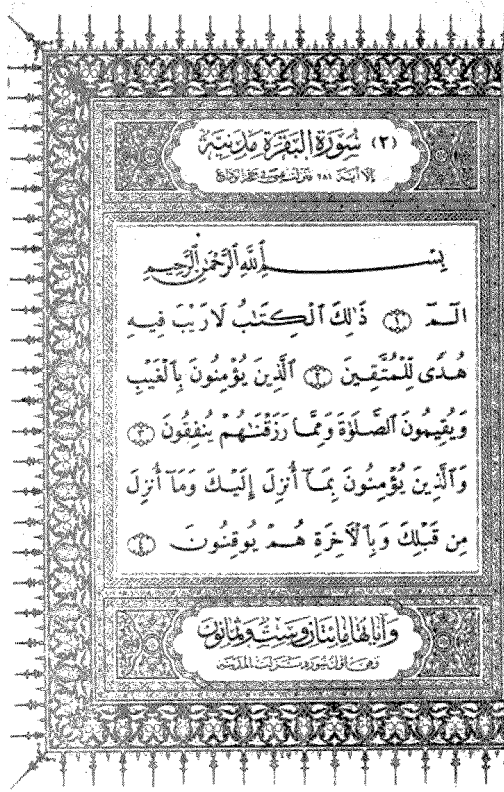 (٢) سُورَةُ الْبَقَرَةِ مَدَنِيَّة
إلا آية ٢٨١ نزلت بمنى في حجة الوداع
بِسْمِ ٱللَّهِ ٱلرَّحْمَٰنِ ٱلرَّحِيمِ
الٓمٓ ۝١ ذَٰلِكَ ٱلْكِتَٰبُ لَا رَيْبَ فِيهِ
هُدًى لِّلْمُتَّقِينَ ۝٢ ٱلَّذِينَ يُؤْمِنُونَ بِٱلْغَيْبِ
وَيُقِيمُونَ ٱلصَّلَوٰةَ وَمِمَّا رَزَقْنَٰهُمْ يُنفِقُونَ ۝٣
وَٱلَّذِينَ يُؤْمِنُونَ بِمَآ أُنزِلَ إِلَيْكَ وَمَآ أُنزِلَ
مِن قَبْلِكَ وَبِٱلْأَخِرَةِ هُمْ يُوقِنُونَ ۝٤
وآياتها مائتان وست وثمانون
وهي أول سورة نزلت بالمدينة